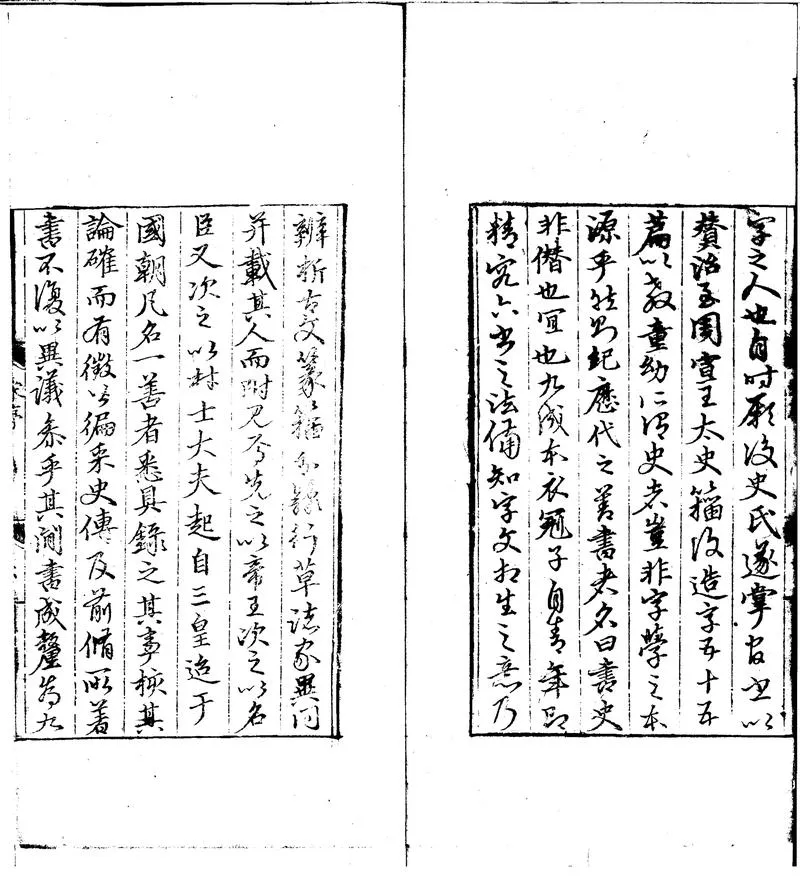 字之人也自时厥後史氏遂掌官書以
贊治至周宣王太史籀復造字五十五
篇以教童幼所謂史者豈非字學之本
源乎然則紀歷代之善書者名曰書史
非僭也宜也九成本衣冠子自青年即
精究六書之法備知字文相生之意乃
辨析古文篆籀分隸行草諸家異同
并載其人而附見焉先之以帝王次之以名
臣又次之以材士大夫起自三皇迄于
國朝凡名一善者悉具錄之其事核其
論確而有徵以徧采史傳及前脩所著
書不復以異議參乎其間書成釐為九